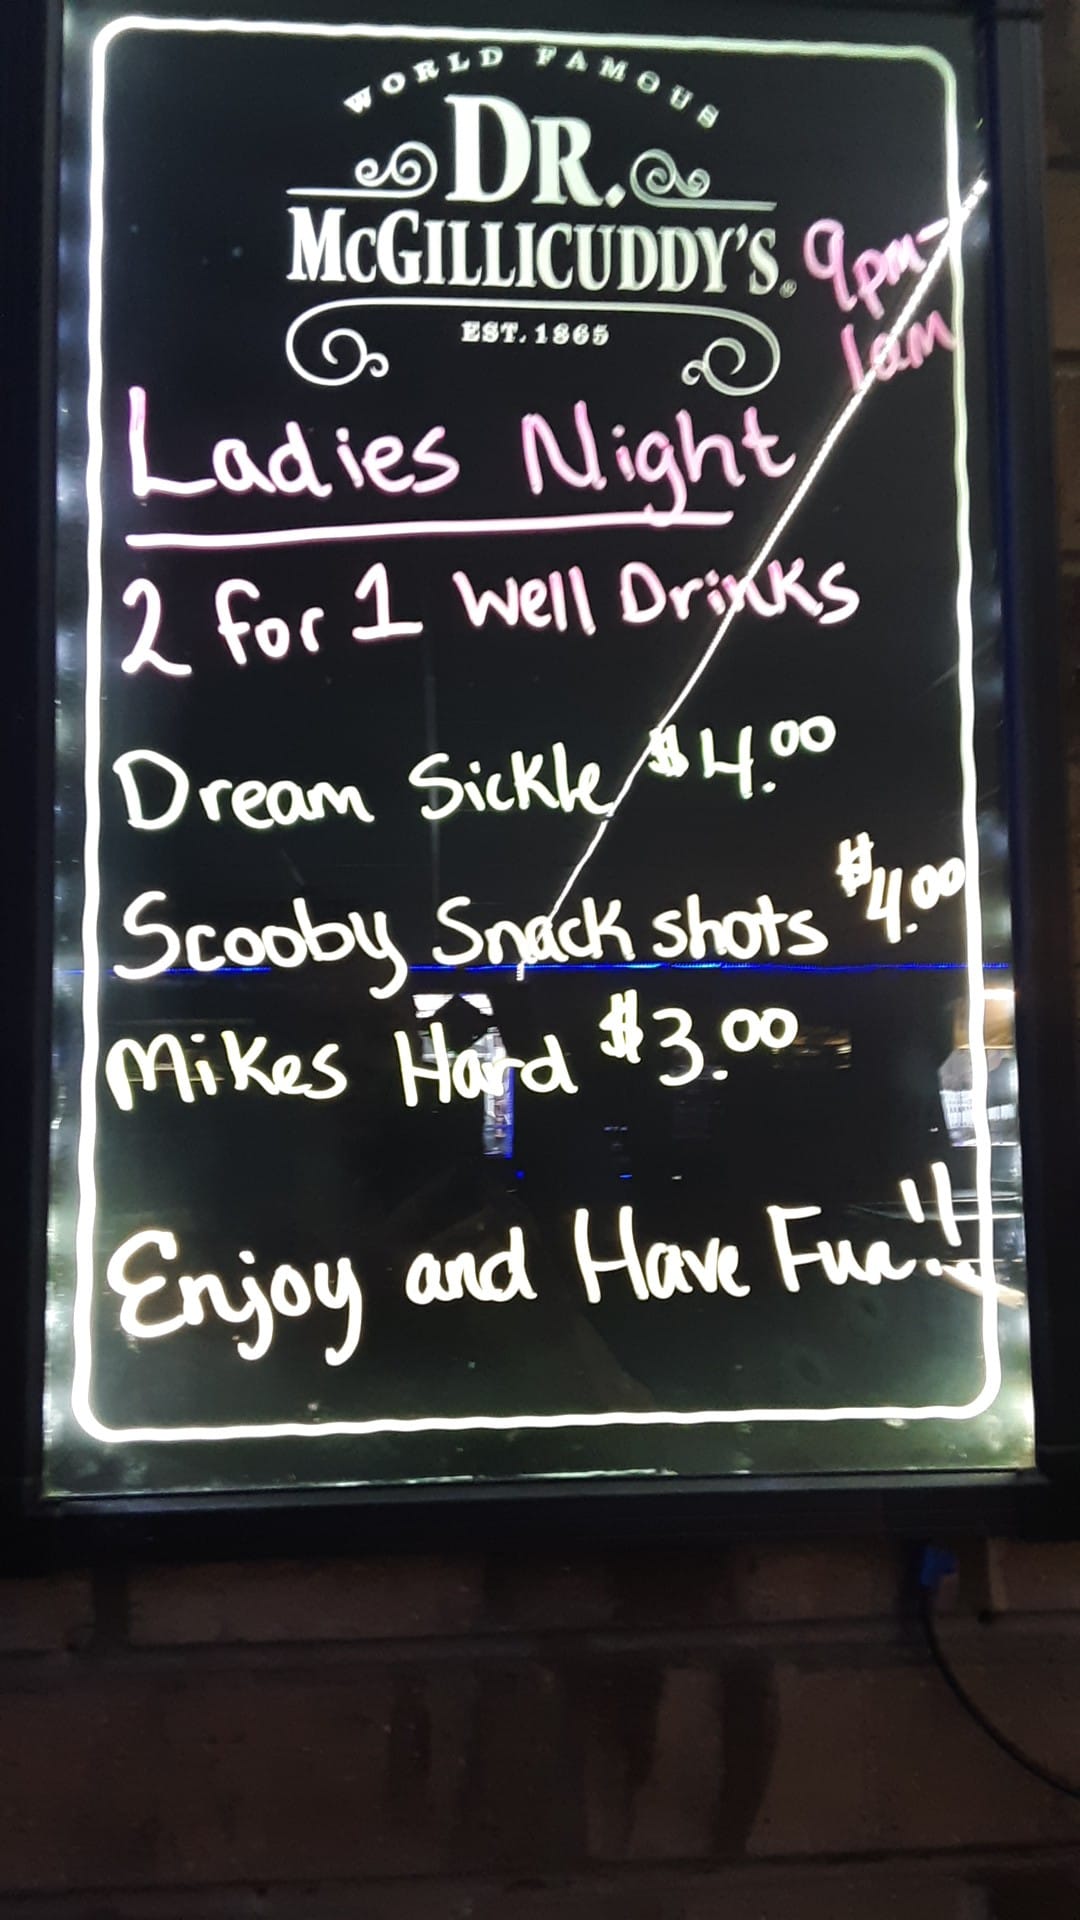 WORLD FAMOUS
DR.
McGILLICUDDY'S®
EST. 1865
9pm-
1am
Ladies Night
2 for 1 Well Drinks
Dream Sickle $4.00
Scooby Snack shots $4.00
Mikes Hard $3.00
Enjoy and Have Fun!!